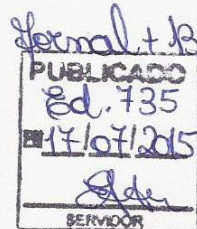 Jornal + B
PUBLICADO
Ed. 735
EM 17/07/2015
SERVIDOR